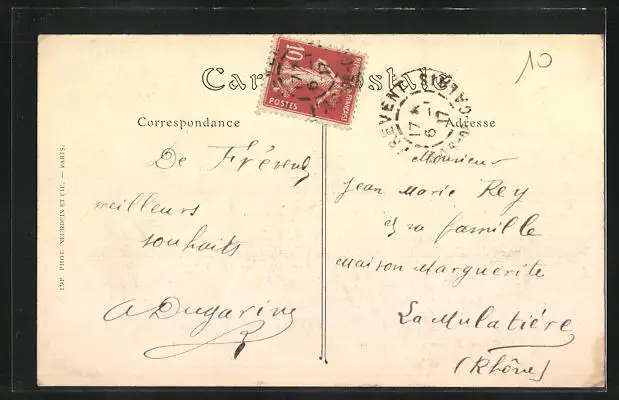 10
Carte Postale
10
POSTES
Correspondance
Adresse
FREVENT
PAS-DE-CALAIS
17 4
6 - 17
De Frévent
meilleurs
souhaits
A Dugarin
Monsieur
Jean Marie Rey
et sa famille
Maison Marguerite
La Mulatière
(Rhône)
IMP. PHOT. NEURDEIN ET CIE. — PARIS.